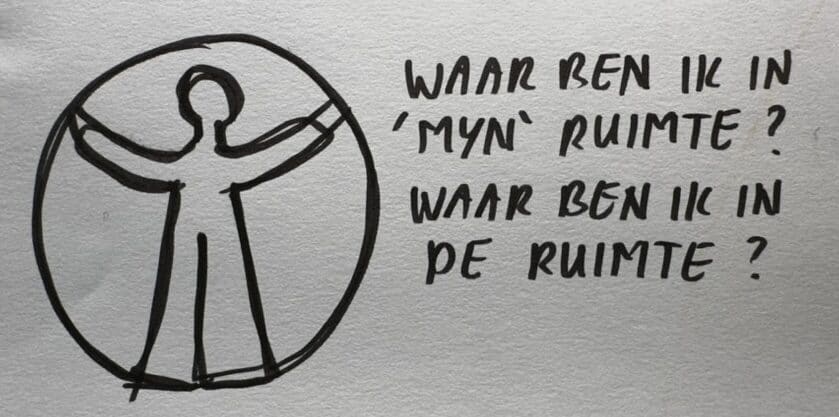 WAAR BEN IK IN
'MYN' RUIMTE?
WAAR BEN IK IN
DE RUIMTE?